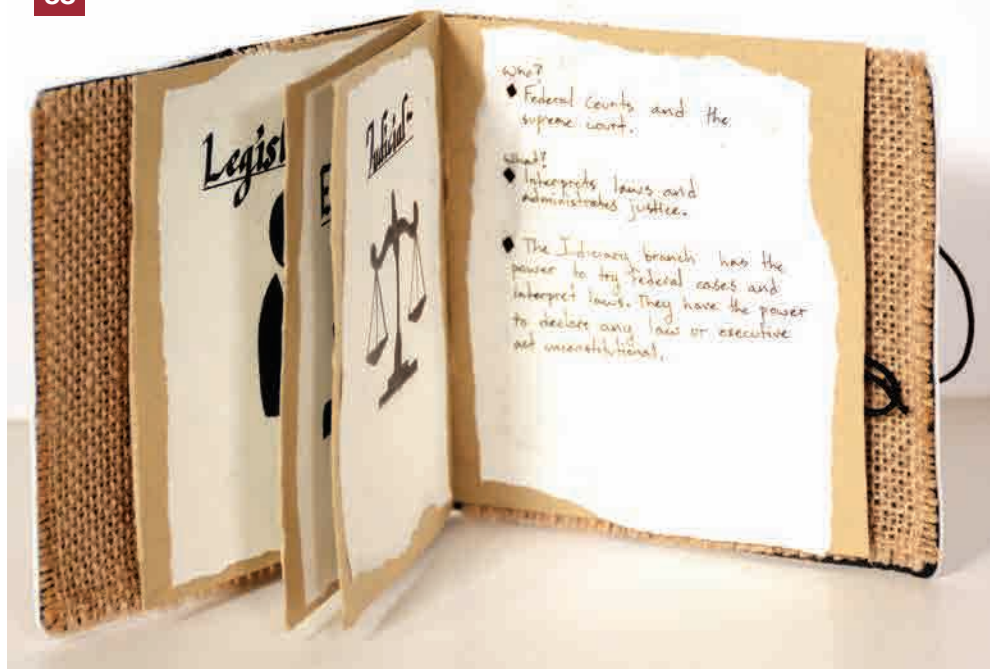 Legisl
E
Judicial-
Who?
◆ Federal Courts and the
supreme court.
What?
◆ Interprets laws and
administrates justice.
◆ The Idiciary branch has the
power to try federal cases and
interpret laws. They have the power
to declare any law or executive
act unconstitutional.